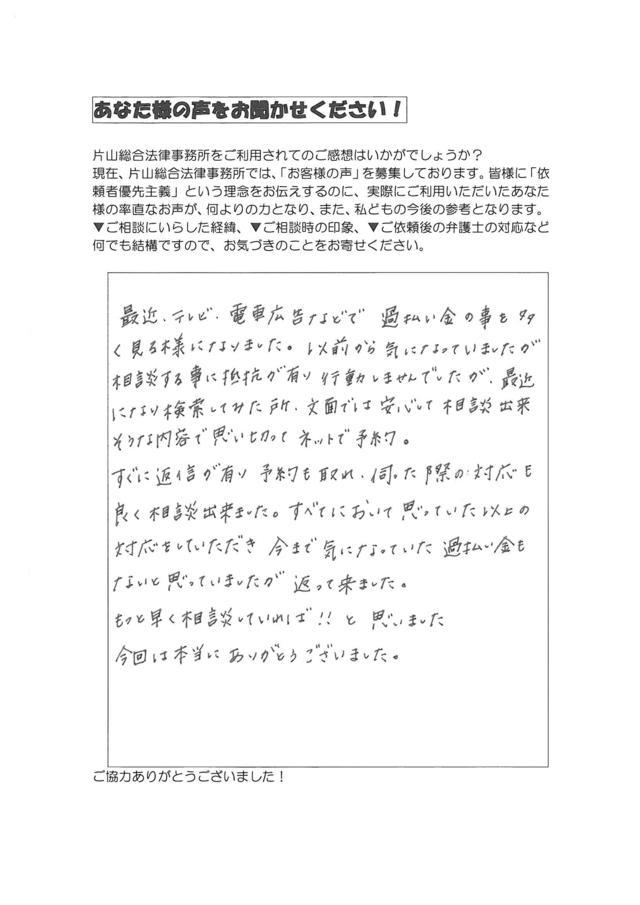 あなた様の声をお聞かせください！
片山総合法律事務所をご利用されてのご感想はいかがでしょうか？
現在、片山総合法律事務所では、「お客様の声」を募集しております。皆様に「依
頼者優先主義」という理念をお伝えするのに、実際にご利用いただいたあなた
様の率直なお声が、何よりの力となり、また、私どもの今後の参考となります。
▼ご相談にいらした経緯、▼ご相談時の印象、▼ご依頼後の弁護士の対応など
何でも結構ですので、お気づきのことをお寄せください。
最近、テレビ、電車広告などで 過払い金の事を多
く見る様になりました。以前から気になっていましたが
相談する事に抵抗が有り 行動しませんでしたが、最近
になり検索してみた所、文面では安心して相談出来
そうな内容で思い切って ネットで予約。
すぐに返信が有り 予約も取れ、伺った際の対応も
良く相談出来ました。すべてにおいて思っていた以上の
対応をしていただき 今まで気になっていた過払い金も
ないと思っていましたが 返って来ました。
もっと早く相談していれば!! と 思いました
今回は本当に ありがとうございました。
ご協力ありがとうございました！